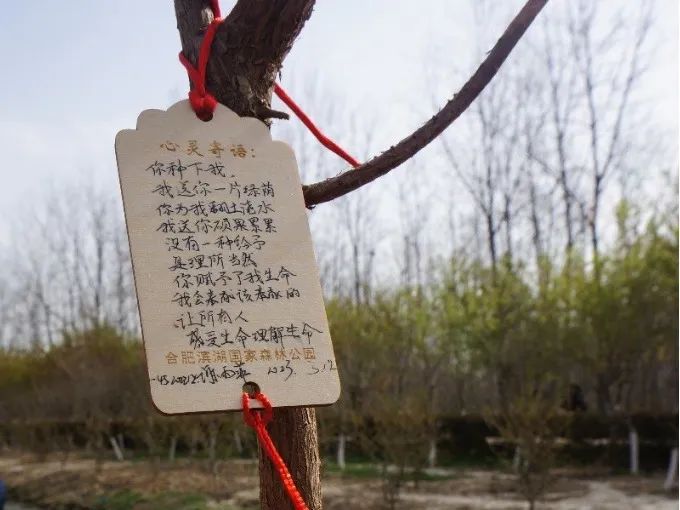 心灵寄语：
你种下我，
我送你一片绿荫
你为我翻土浇水
我送你硕果累累
没有一种给予
是理所当然
你赋予了我生命
我会奉献该奉献的
让所有人
感受生命理解生命
合肥滨湖国家森林公园
2023. 3.12